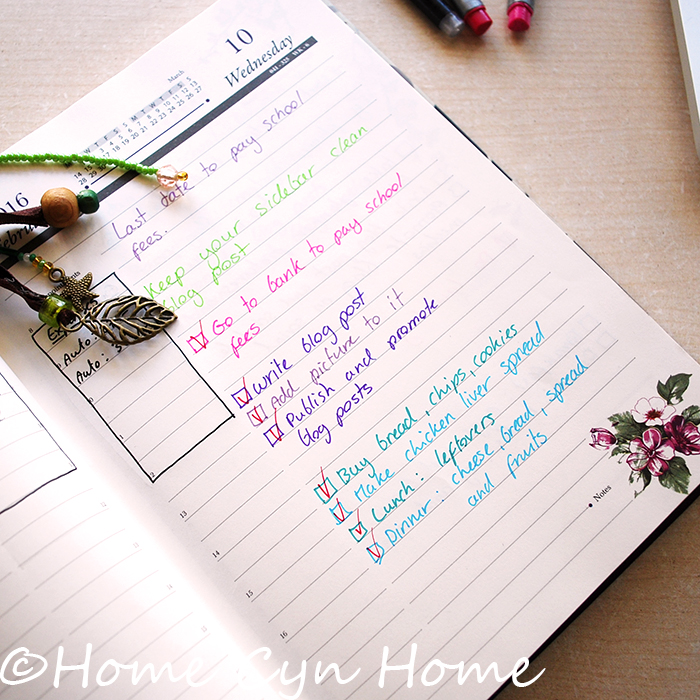 10
Wednesday
041 - 325 WK - 8
March
M T W T F S S
016
Last date to pay school
fees.
Keep your sidebar clean
blog post
Go to bank to pay school
fees
write blog post
Add picture to it
Publish and promote
blog posts
Buy bread, chips, cookies
Make chicken liver spread
Lunch: leftovers
Dinner: cheese, bread, spread
and fruits
Auto:
Auto:
11
12
13
14
15
16
Notes
©Home Cyn Home